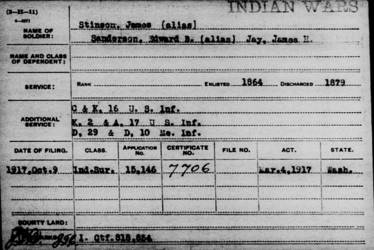 INDIAN WARS
(3-35-11)
Stinson, James (alias)
NAME OF SOLDIER: Sanderson, Edward B. (alias) Jay, James H.
NAME AND CLASS OF DEPENDENT:
SERVICE: RANK ENLISTED 1864 DISCHARGED 1879
C & K, 16 U. S. Inf.
ADDITIONAL SERVICE: K. 2 & A. 17 U S Inf.
D, 29 & D, 10 Me. Inf.
DATE OF FILING. CLASS. APPLICATION No. CERTIFICATE NO. FILE NO. ACT. STATE.
1917, Oct. 9 Ind. Sur. 15,146 7706 Mar. 4, 1917 Wash.
BOUNTY LAND:
I. Ctf. 818,854